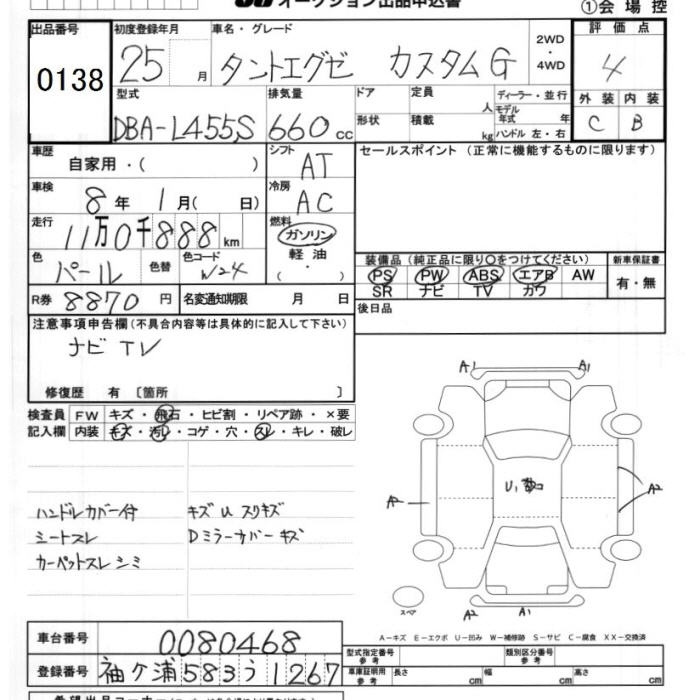 オークション出品申込書
①会場控
出品番号
0138
初度登録年月
25 月
車名・グレード
タントエグゼ カスタムG
2WD
・
4WD
評価点
4
外装 内装
C B
型式
DBA-L455S
排気量
660 cc
ドア
形状
定員 人
積載 kg
ディーラー・並行
モデル年式 年
ハンドル 左・右
車歴
自家用・( )
シフト
AT
セールスポイント (正常に機能するものに限ります)
車検
8年 1月( 日)
冷房
AC
走行
11万0千888km
燃料
ガソリン
軽油
・
( )
色
パール
色替
色コード
W24
R券 8870円
名変通知期限 月 日
装備品 (純正品に限り○をつけてください)
PS PW ABS エアB AW
SR ナビ TV カワ
新車保証書
有・無
後日品
注意事項申告欄(不具合内容等は具体的に記入して下さい)
ナビ TV
修復歴 有 〔箇所 〕
検査員 FW キズ・飛石・ヒビ割・リペア跡・×要
記入欄 内装 キズ・汚レ・コゲ・穴・スレ・キレ・破レ
ハンドルカバー付
シートスレ
カーペットスレ シミ
キズ U スリキズ
Dミラーカバー キズ
A1 A1
U1
A2 A2
スペア
A2 A1
A－キズ E－エクボ U－凹み W－補修跡 S－サビ C－腐食 XX－交換済
車台番号 0080468
登録番号 袖ケ浦 583 う 1267
型式指定番号 参考
類別区分番号 参考
車庫証明用 参考 長さ cm 幅 cm 高さ cm